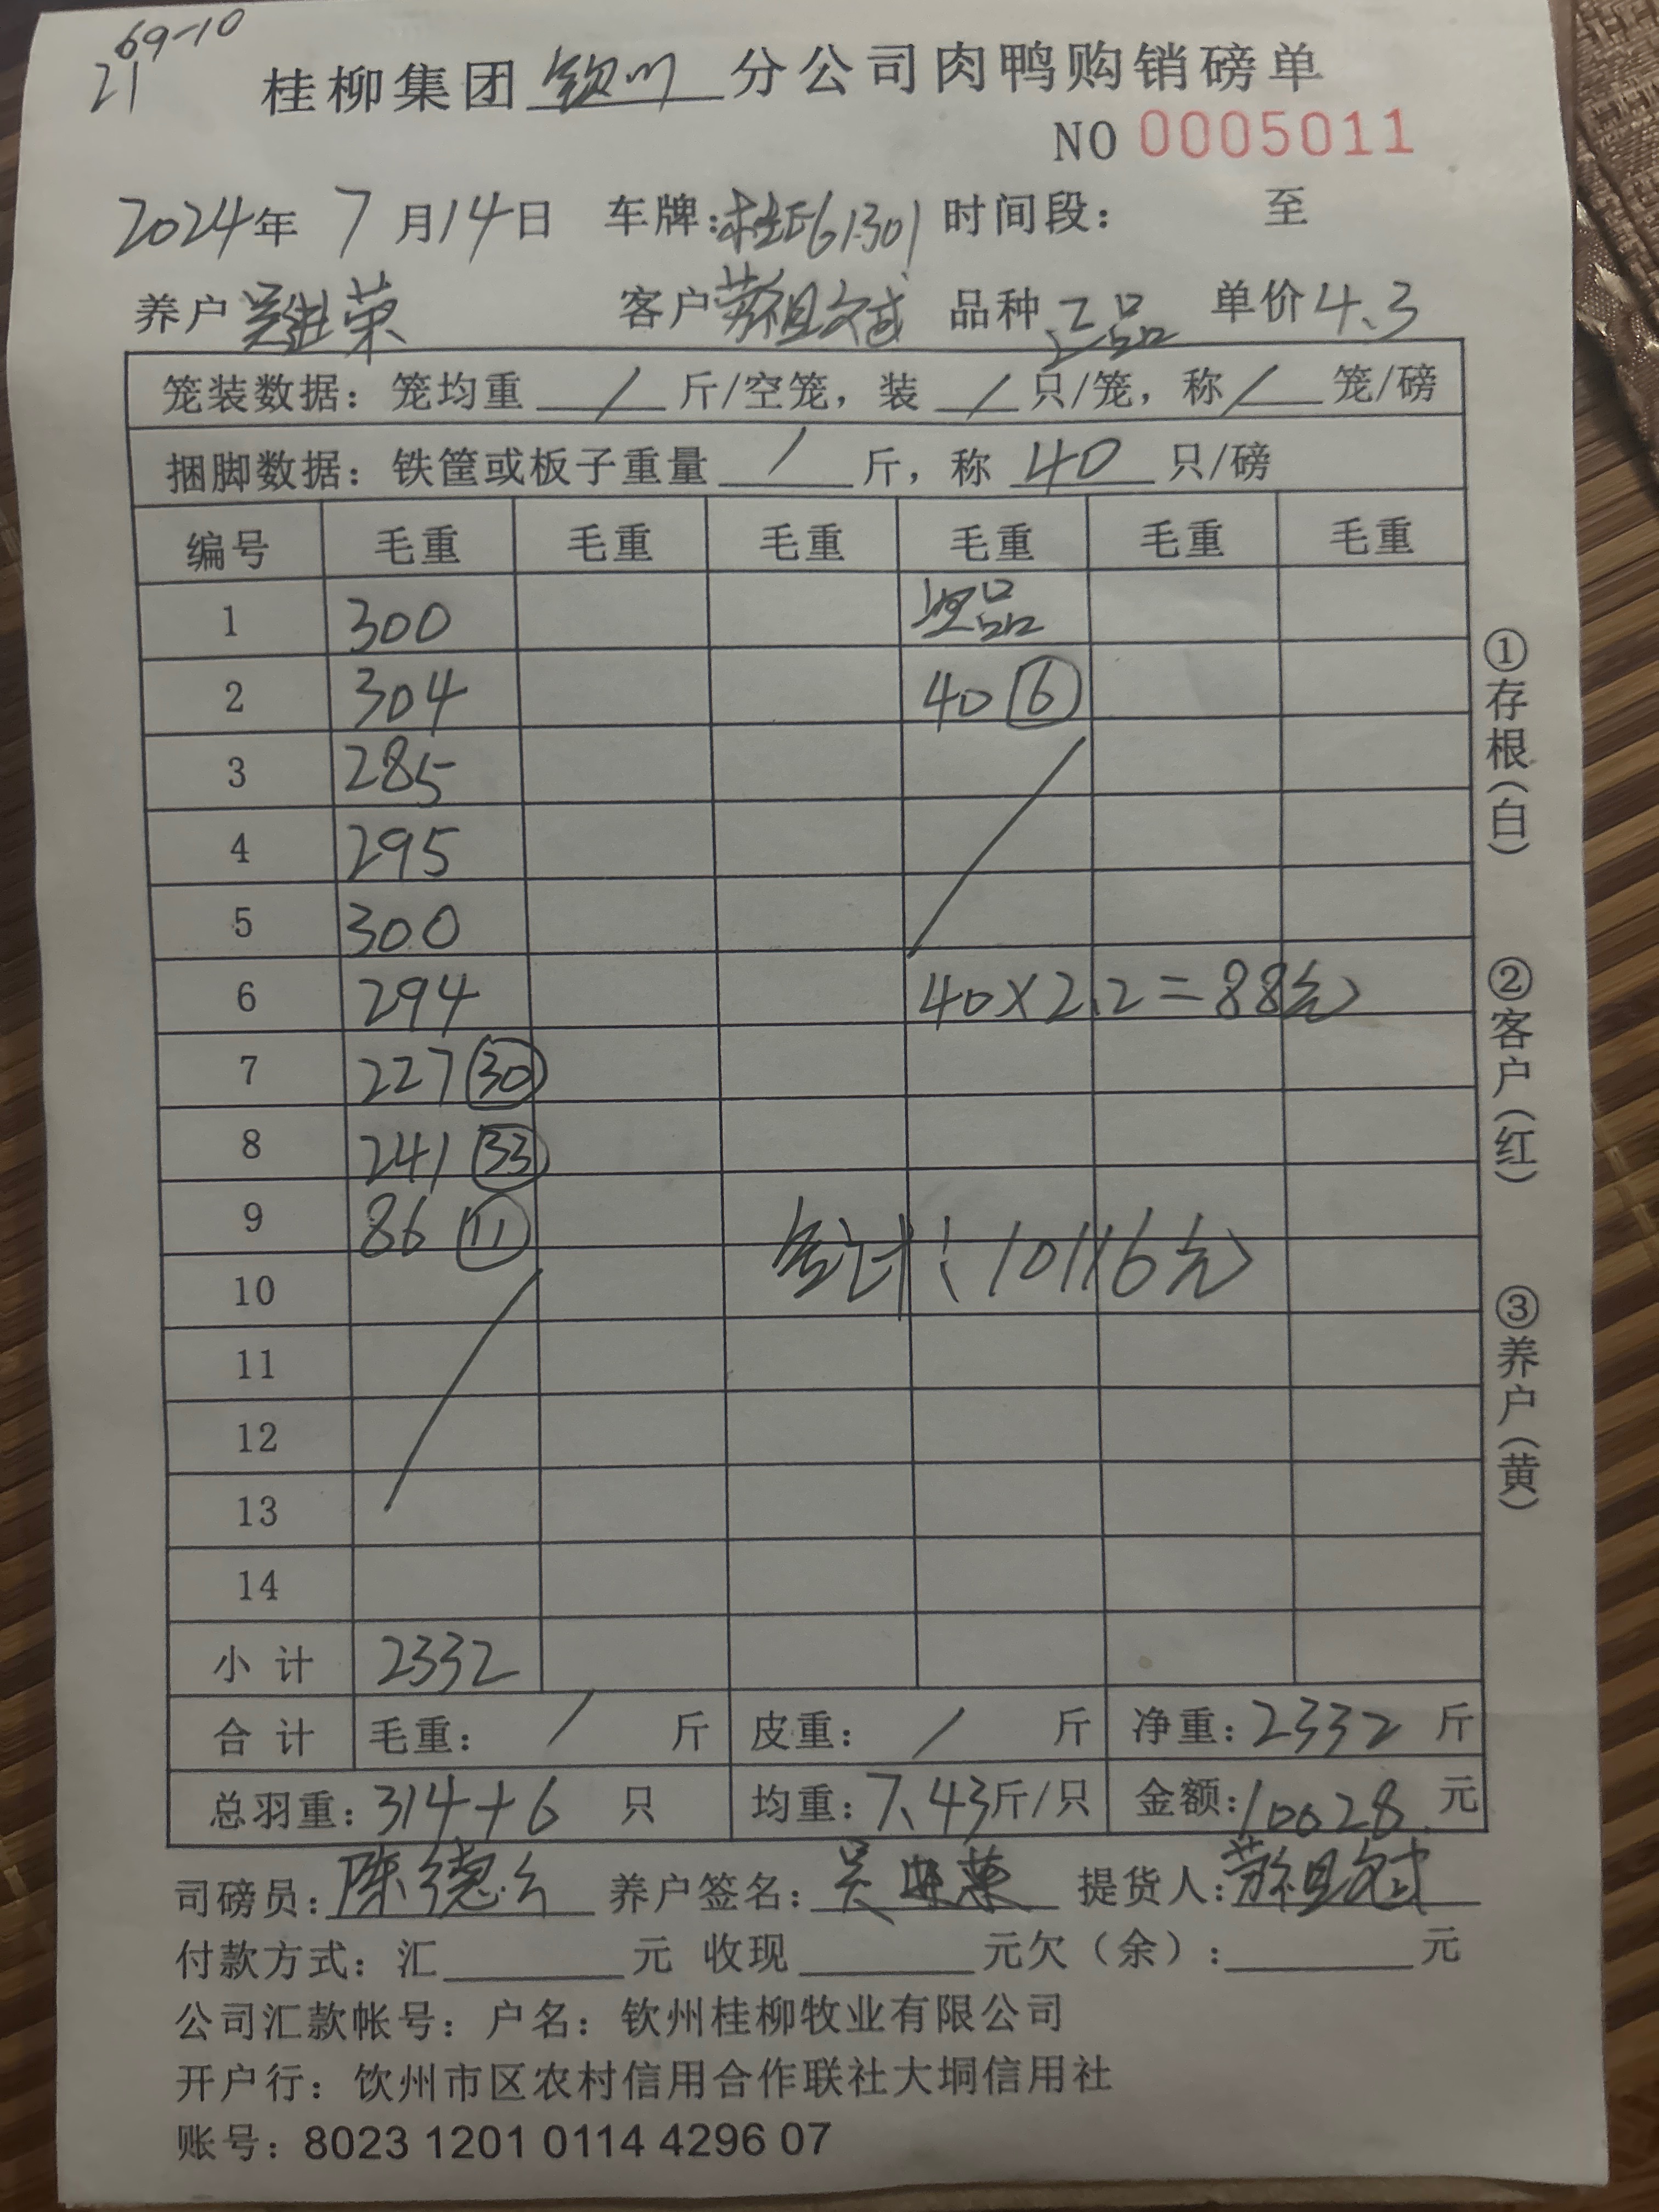 69-10
21
桂柳集团 钦州 分公司肉鸭购销磅单
NO 0005011
2024年 7月14日 车牌:桂E61301 时间段: 至
养户 吴进荣 客户 劳祖 品种 正品 单价4.3
笼装数据: 笼均重 / 斤/空笼, 装 / 只/笼, 称 / 笼/磅
捆脚数据: 铁筐或板子重量 / 斤, 称 40 只/磅
编号 毛重 毛重 毛重 毛重 毛重 毛重
1 300 品
2 304 40 ⑥
3 285
4 295
5 300
6 294 40×2.2=88元
7 227 ㉚
8 241 ㉝
9 86 ⑪ 合计:10116元
10
11
12
13
14
小 计 2332
合 计 毛重: / 斤 皮重: / 斤 净重:2332 斤
总羽重:314+6 只 均重:7.43斤/只 金额:10028 元
司磅员:陈德 养户签名:吴进荣 提货人:劳祖
付款方式: 汇 元 收现 元欠(余): 元
公司汇款帐号: 户名: 钦州桂柳牧业有限公司
开户行: 钦州市区农村信用合作联社大垌信用社
账号: 8023 1201 0114 4296 07
①存根(白)
②客户(红)
③养户(黄)